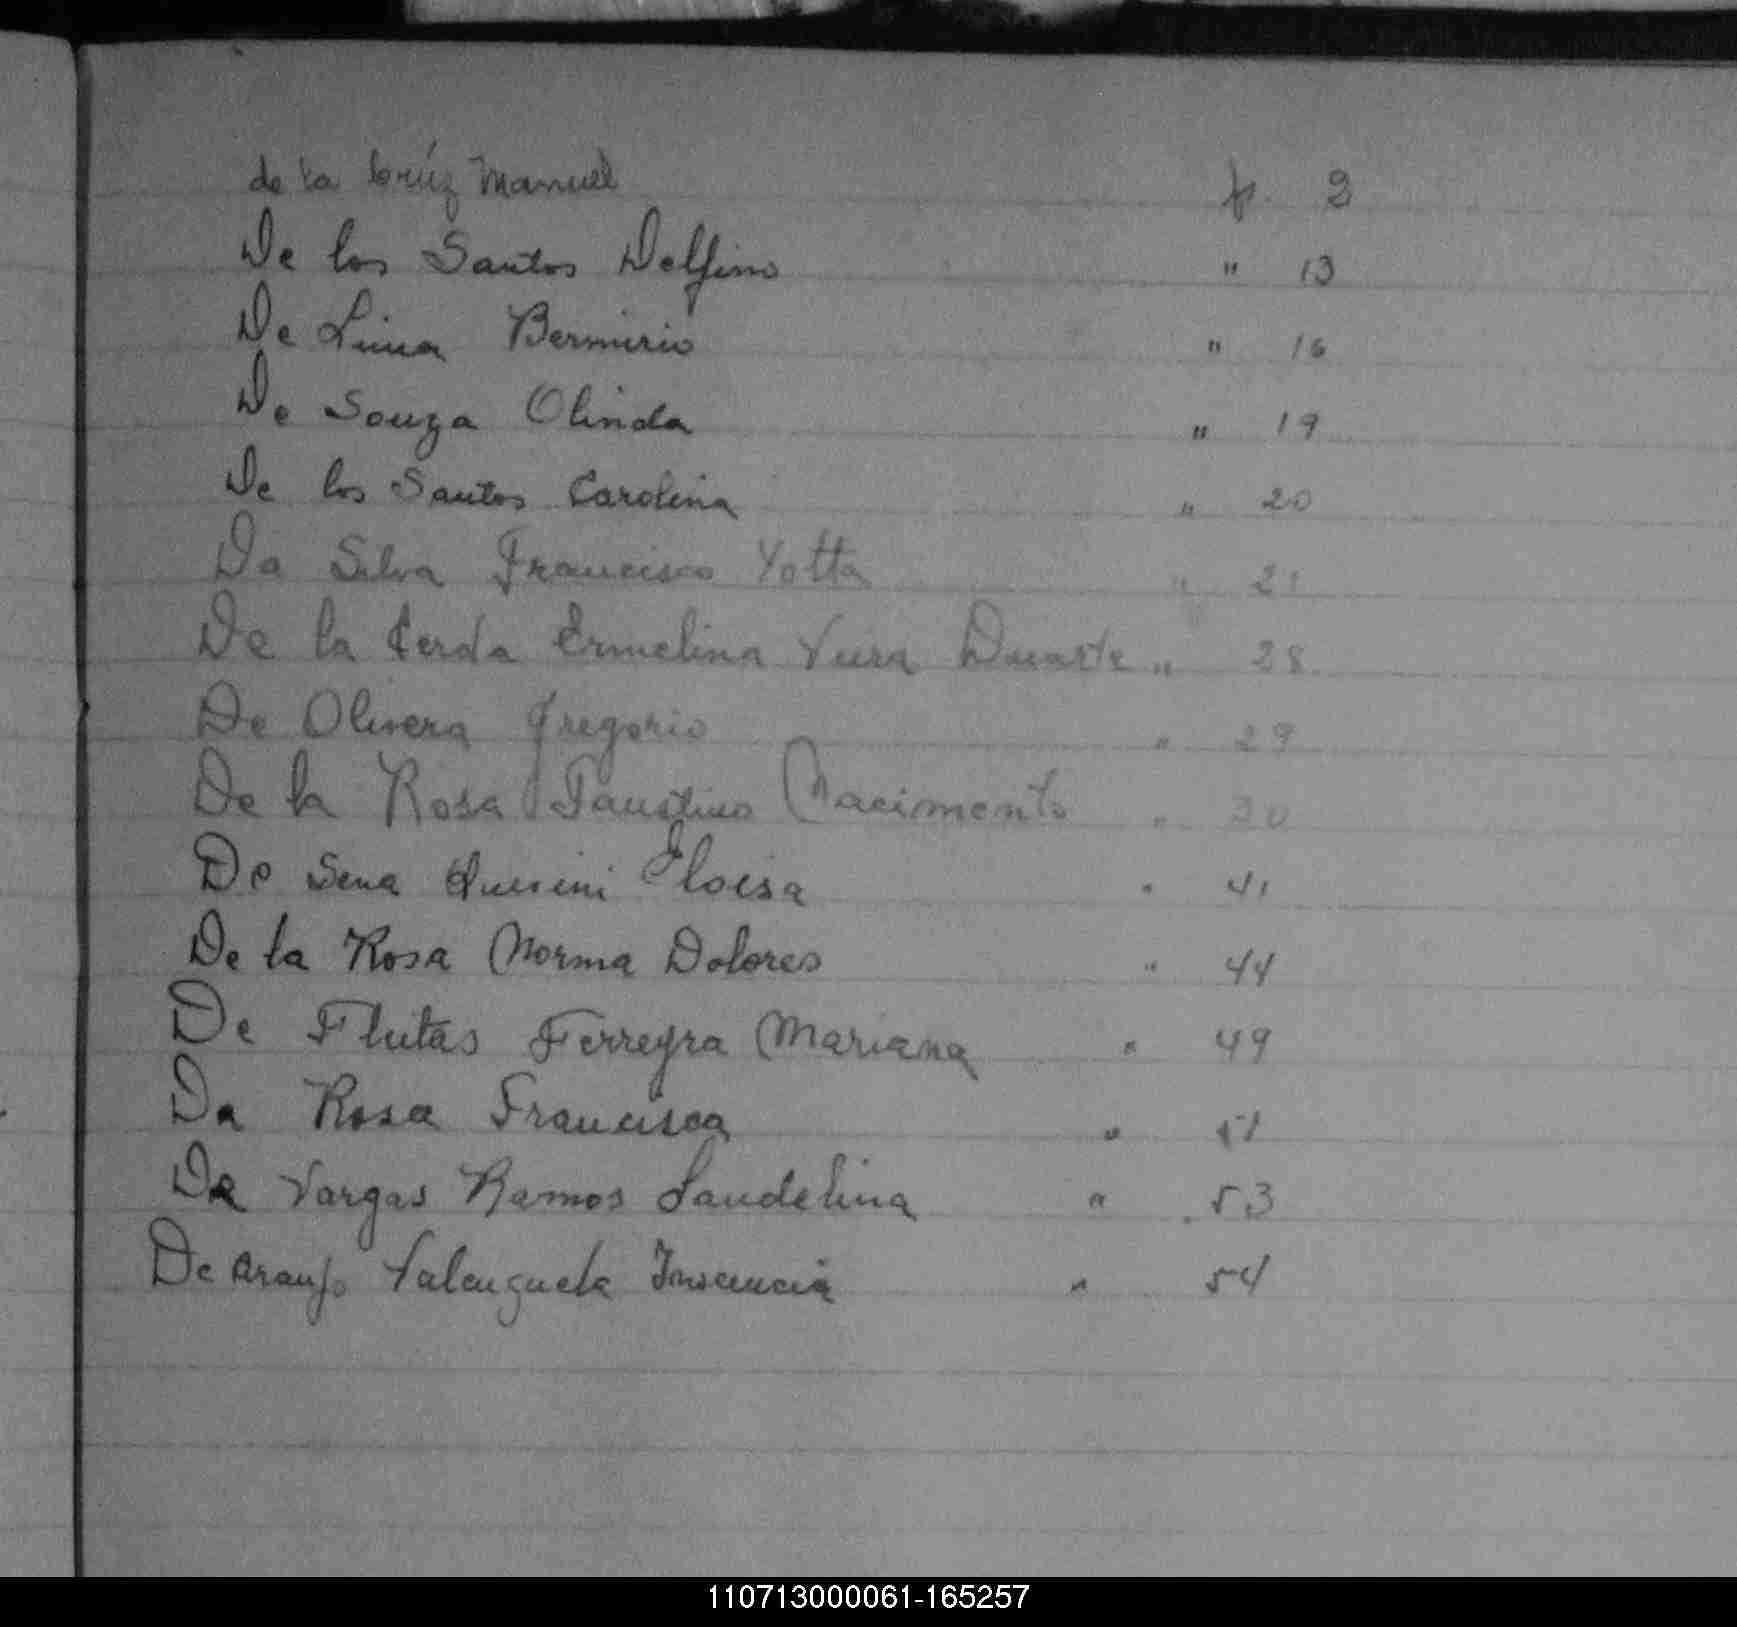 de la Crúz Manuel f. 2
De los Santos Delfino " 13
De Lima Bermirio " 16
De Souza Olinda " 19
De los Santos Carolina " 20
Da Silva Francisco Yotta " 21
De la Cerda Ermelina Vera Duarte " 28
De Olivera Gregorio " 29
De la Rosa Faustino Nacimento " 30
De Sena Eloisa " 41
De la Rosa Norma Dolores " 44
De Flutas Ferreyra Mariana " 49
Da Rosa Francisca " 51
De Vargas Ramos Laudelina " 53
De Araujo Valenzuela " 54
110713000061-165257